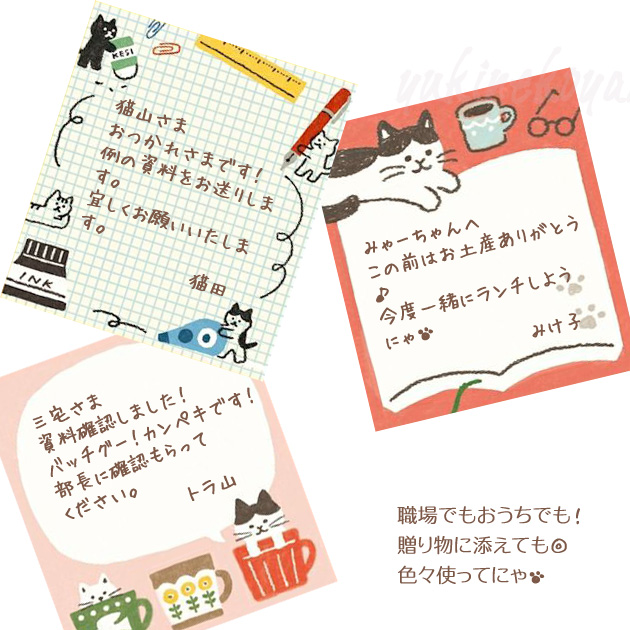 KESI
猫山さま
おつかれさまです！
例の資料をお送りしま
す。
宜しくお願いいたしま
す。
猫田
INK
みゃーちゃんへ
この前はお土産ありがとう
♪
今度一緒にランチしよう
にゃ🐾
みけ子
三宅さま
資料確認しました！
バッチグー！カンペキです！
部長に確認もらって
ください。
トラ山
職場でもおうちでも！
贈り物に添えても◎
色々使ってにゃ🐾